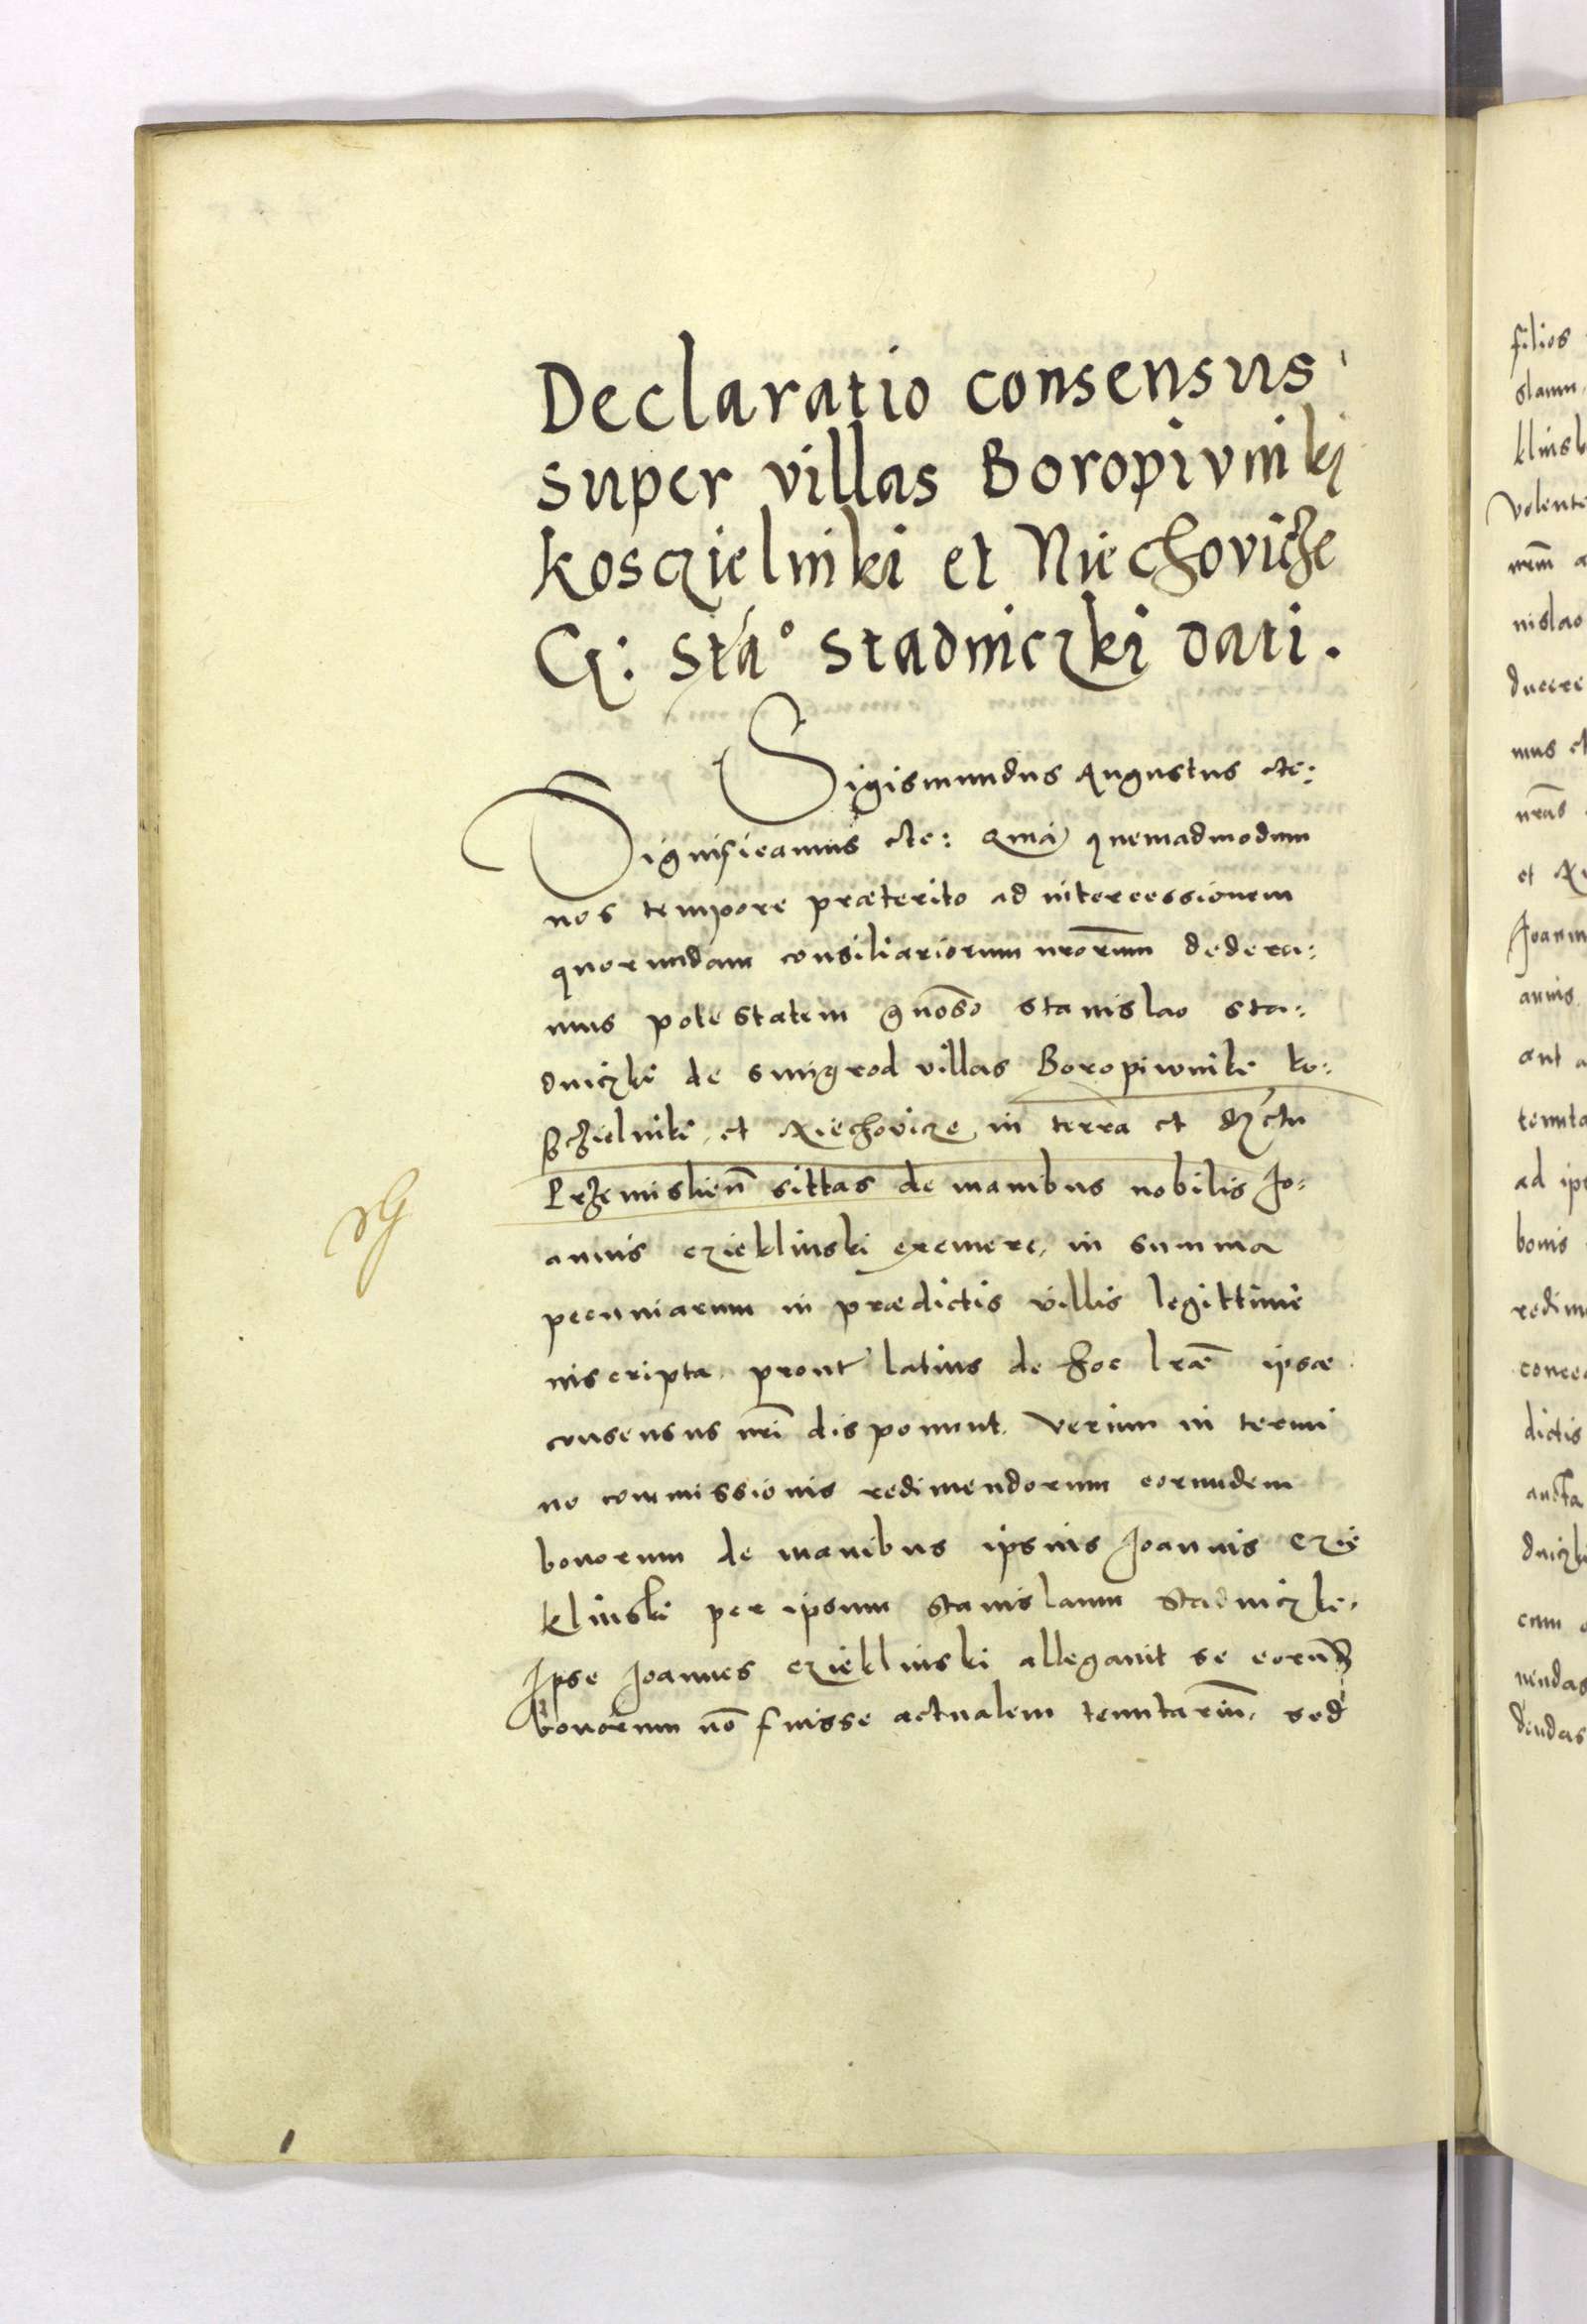 Declaratio consensus
super villas Boropivniki
Kosczielniki et Niechovicze
G: Sta° Stadniczki dati.
Sigismundus Augustus etc:
Significamus etc: Quia quemadmodum
nos tempore præterito ad intercessionem
quorundam consiliariorum nrorum dedera:
mus potestatem gnoso Stanislao Sta:
dniczki de Smigrod villas Boropiwniki ko:
sczielniki et Niechovicze in terra et drctu
Przemislien sittas de manibus nobilis Jo:
annis Czieklinski exemere, in summa
pecuniarum in prædictis villis legittime
inscripta, prout latius de hoc lræ ipsæ
consensus nri disponunt. Verum in termi
no commissionis redimendorum eorundem
bonorum de manibus ipsius Joannis Czie
klinski per ipsum Stanislaum Stadniczki.
Ipse Joannes Czieklinski allegavit se eorund
bonorum no fuisse actualem tenutarium, sed
filios
slaum
klinsk
volente
nrm a
nislao
ducere
mus et
nras
et
Joann
annis
aut a
tenuta
ad ips
bonis
redim
conced
dictis
aucta
dniczki
cum
nendas
dendas